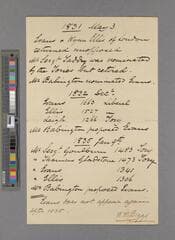 1831 May 3
Evans & Wynn Ellis of London
returned unopposed
Mr Serjt Taddy was nominated
by the Tories but retired.
Mr Babington nominated Evans
1832 Dec.
Evans 1663 Liberal
Ellis 1527 "
Leigh 1266 Tory
Mr Babington proposed Evans
1835 Jan
Mr Serjt Goulburn 1483 Tory
" Thomas Gladstone 1473 Tory
" Evans 1341
" Ellis 1306
Mr Babington proposed Evans.
Evans does not appear again
after 1835.